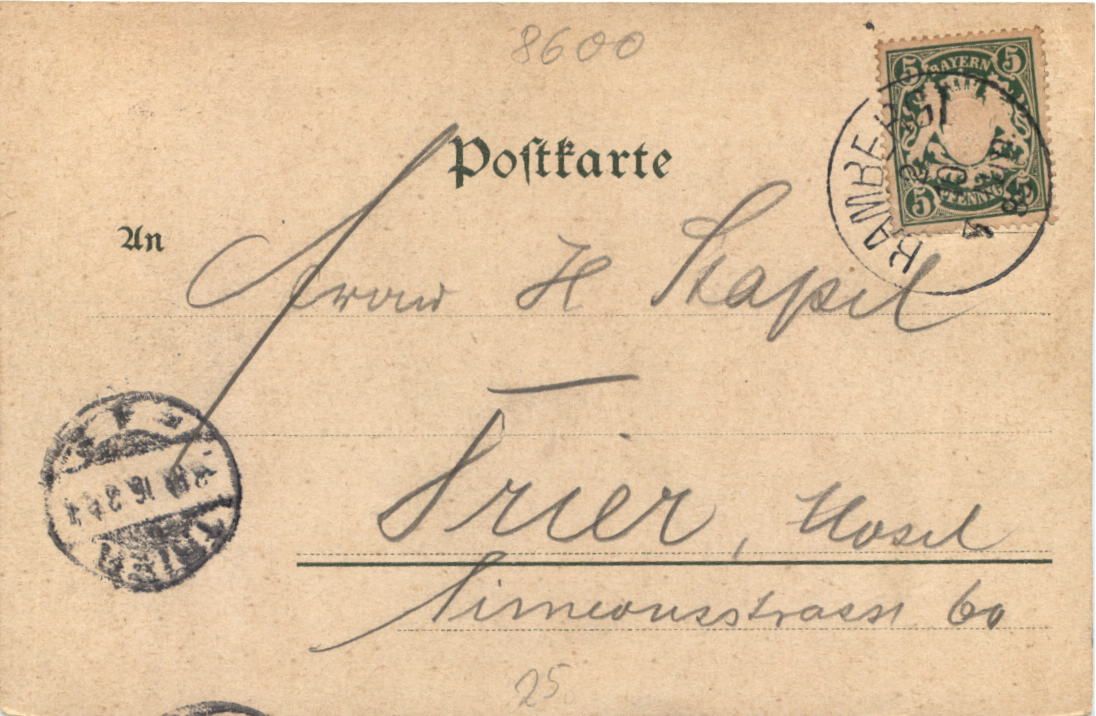 8600
BAYERN
5 5
5 5
PFENNIG
BAMBERG I
Postkarte
An
Frau H Stapel
Trier, Mosel
TRIER
Simeonsstrasse 60
25